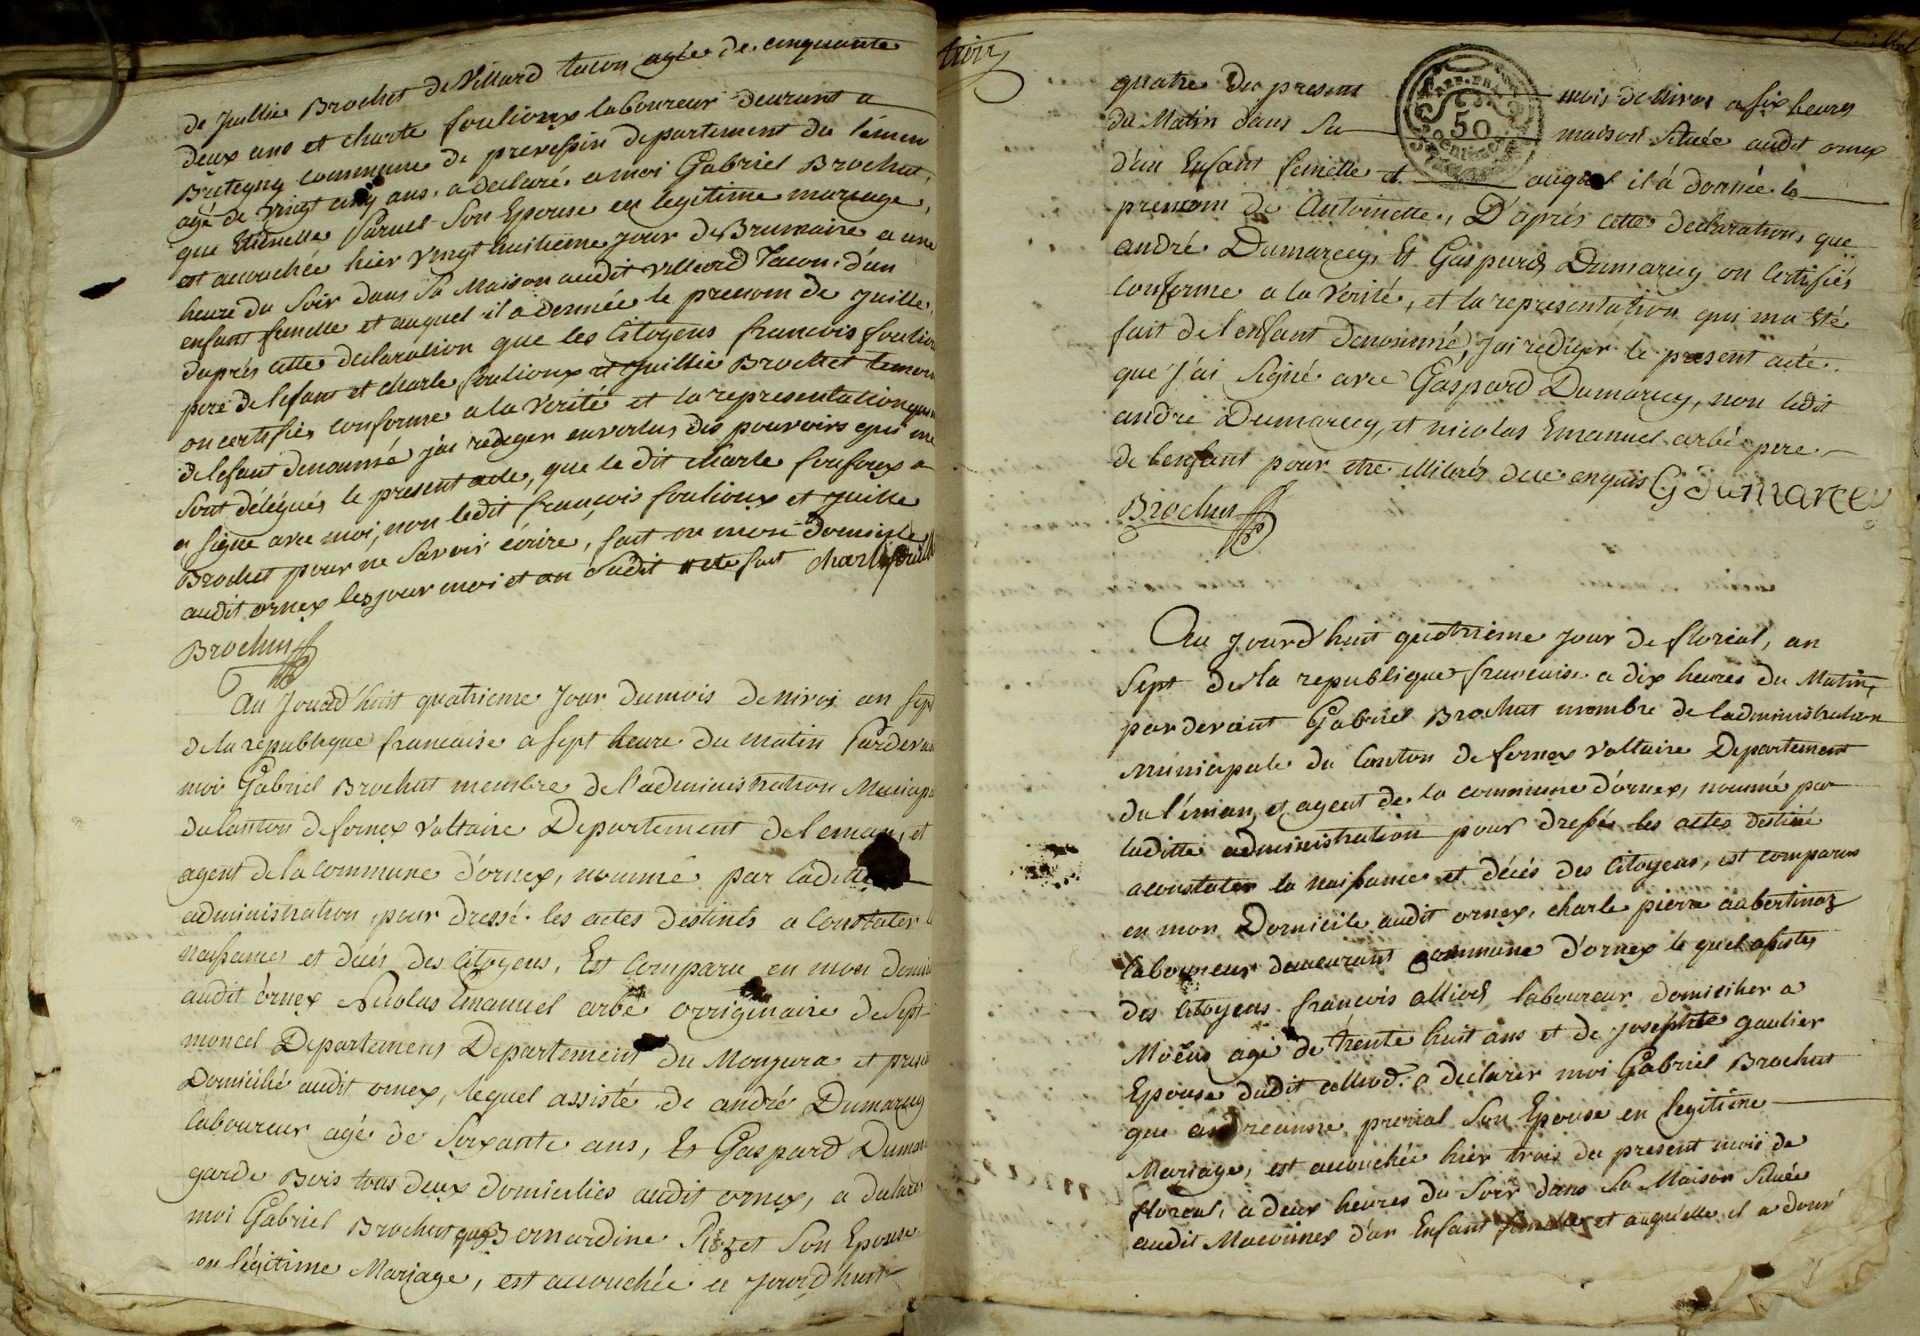 de Jullie Brochet de Villard tacon agée de cinquante
deux ans et charle foulioux laboureur deurant a
Bretegny commune de prevessin departement du léman
agé de vingt cinq ans. a declaré a moi Gabriel Brochut,
que Etienette Son Epouse en legitime mariage,
est acouchée hier vingt huitieme jour de Brumaire a une
heure du Soir dans Sa Maison audit villard Tacon. d'un
enfant femelle et auquel il a donnée le prenom de Juille.
daprés cette declaration que les Citoyens francois foulioux
pere de lefant et charle foulioux et Juillie Brochet temoin
on certifiés conforme a la Verité et la representation
de lefant denommé j'ai rediger en vertus des pouvoirs qui me
Sont délégués le present acte, que le dit charle foufoux a
a signé avec moi, non ledit françois foulioux et Juille
Brochet pour ne Savoir écrire, fait en mon domicile
audit ornex les jour moi et an Sudit charle
Brochut
Au Jourd'huit quatrieme Jour du mois de nivos an sept
de la république francaise a sept heure du matin Pardevant
moi Gabriel Brochut membre de l'administration Municipale
du canton de fernex Voltaire Departement de leman, et
agent de la commune d'ornex, nommé par ladite
administration pour dressé les actes destinés a Constater la
naissance et décés des Citoyens, Est Comparu en mon domicile
audit ornex Nicolas Emanuel arbé orriginaire de Sept
moncel Departemens Departement du Monjura et présent
Domicilié audit ornex, lequel assisté de andré Dumarcey
laboureur agé de Soixante ans, Et Gaspard Dumarcey
garde Bois tous deux domiciliés audit ornex, a declaré
moi Gabriel Brochut que Bernardine Son Epouse
en légitime Mariage, est acouchée ce jourd'huit
trois
quatre du present mois de nivos a six heures
du Matin dans Sa maison Située audit ornex
d'un Enfant femelle et auquel il a donnée le
prenom de Antoinette, D'aprés cette declaration, que
andré Dumarcey, Et Gaspard Dumarcey on Certifiés
Conforme a la Verité, et la representation qui ma Eté
fait de l'enfant denommé, j'ai rediger le present acte
que j'ai Signé avec Gaspard Dumarcey, non ledit
andre Dumarcey, et nicolas Emanuel arbé pere
de lenfant pour etre illitirés de ce enquis G dumarcey
Brochut
Au Jourd'huit quatrieme jour de floreal, an
Sept de la republique francaise a dix heures du Matin,
par devant Gabriel Brochut membre de ladministration
Municipale du Canton de fernex Voltaire Departement
du léman, et agent de la commune d'ornex, nommé par
laditte administration pour dressés les actes destiné
a constater la naissance et décés des Citoyens, est comparus
en mon Domicile audit ornex, charle pierre aubertinoz
laboureur demeurant commune d'ornex le quel assistés
des Citoyens francois alliod laboureur domicilier a
Moëns agé de trente huit ans et de josephte gautier
Epouse dudit alliod. a declarer moi Gabriel Brochut
que Son Epouse en legitime
Mariage, est acouchée hier trois du present mois de
floreal, a deux heures du Soir dans Sa Maison Située
audit Maconnex d'un Enfant femelle et auquelle il a donné